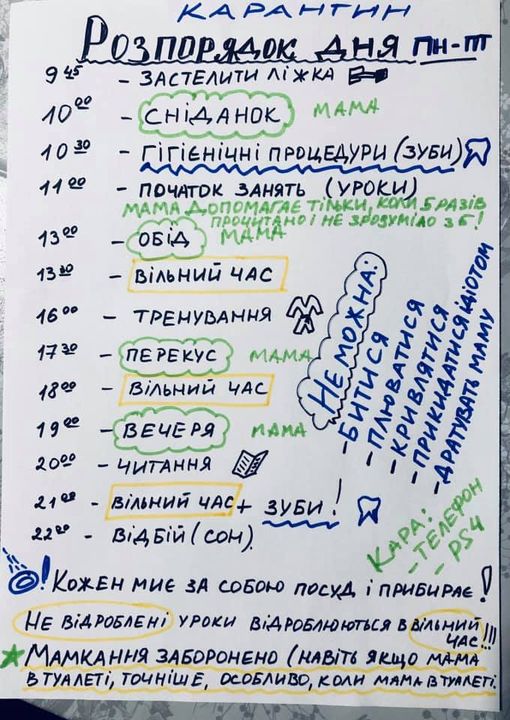 КАРАНТИН
РОЗПОРЯДОК ДНЯ ПН-ПТ
9 45 - ЗАСТЕЛИТИ ЛІЖКА
10 00 - СНІДАНОК МАМА
10 30 - ГІГІЄНІЧНІ ПРОЦЕДУРИ (ЗУБИ)
11 00 - ПОЧАТОК ЗАНЯТЬ (УРОКИ)
МАМА ДОПОМАГАЄ ТІЛЬКИ, КОЛИ 5 РАЗІВ
ПРОЧИТАНО І НЕ ЗРОЗУМІЛО З 6!
13 00 - ОБІД МАМА
13 30 - ВІЛЬНИЙ ЧАС
16 00 - ТРЕНУВАННЯ
17 30 - ПЕРЕКУС МАМА
18 00 - ВІЛЬНИЙ ЧАС
19 00 - ВЕЧЕРЯ МАМА
20 00 - ЧИТАННЯ
21 00 - ВІЛЬНИЙ ЧАС + ЗУБИ!
22 20 - ВІДБІЙ (СОН).
НЕ МОЖНА:
- БИТИСЯ
- ПЛЮВАТИСЯ
- КРИВЛЯТИСЯ
- ПРИКИДАТИСЯ ІДІОТОМ
- ДРАТУВАТЬ МАМУ
КАРА:
- ТЕЛЕФОН
- PS4
! КОЖЕН МИЄ ЗА СОБОЮ ПОСУД І ПРИБИРАЄ!
НЕ ВІДРОБЛЕНІ УРОКИ ВІДРОБЛЮЮТЬСЯ В ВІЛЬНИЙ
ЧАС!!!
МАМКАННЯ ЗАБОРОНЕНО (НАВІТЬ ЯКЩО МАМА
В ТУАЛЕТІ, ТОЧНІШЕ, ОСОБЛИВО, КОЛИ МАМА В ТУАЛЕТІ.